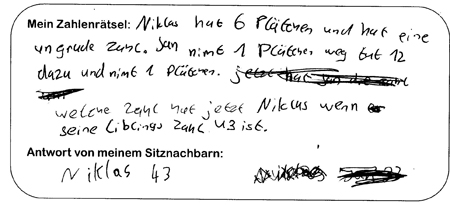 Mein Zahlenrätsel: Niklas hat 6 Plättchen und hat eine
ungrade Zahl. Jan nimt 1 Plättchen weg tut 12
dazu und nimt 1 Plättchen.
welche Zahl hat jetzt Niklas wenn
seine Liblings Zahl 43 ist.
Antwort von meinem Sitznachbarn:
Niklas 43